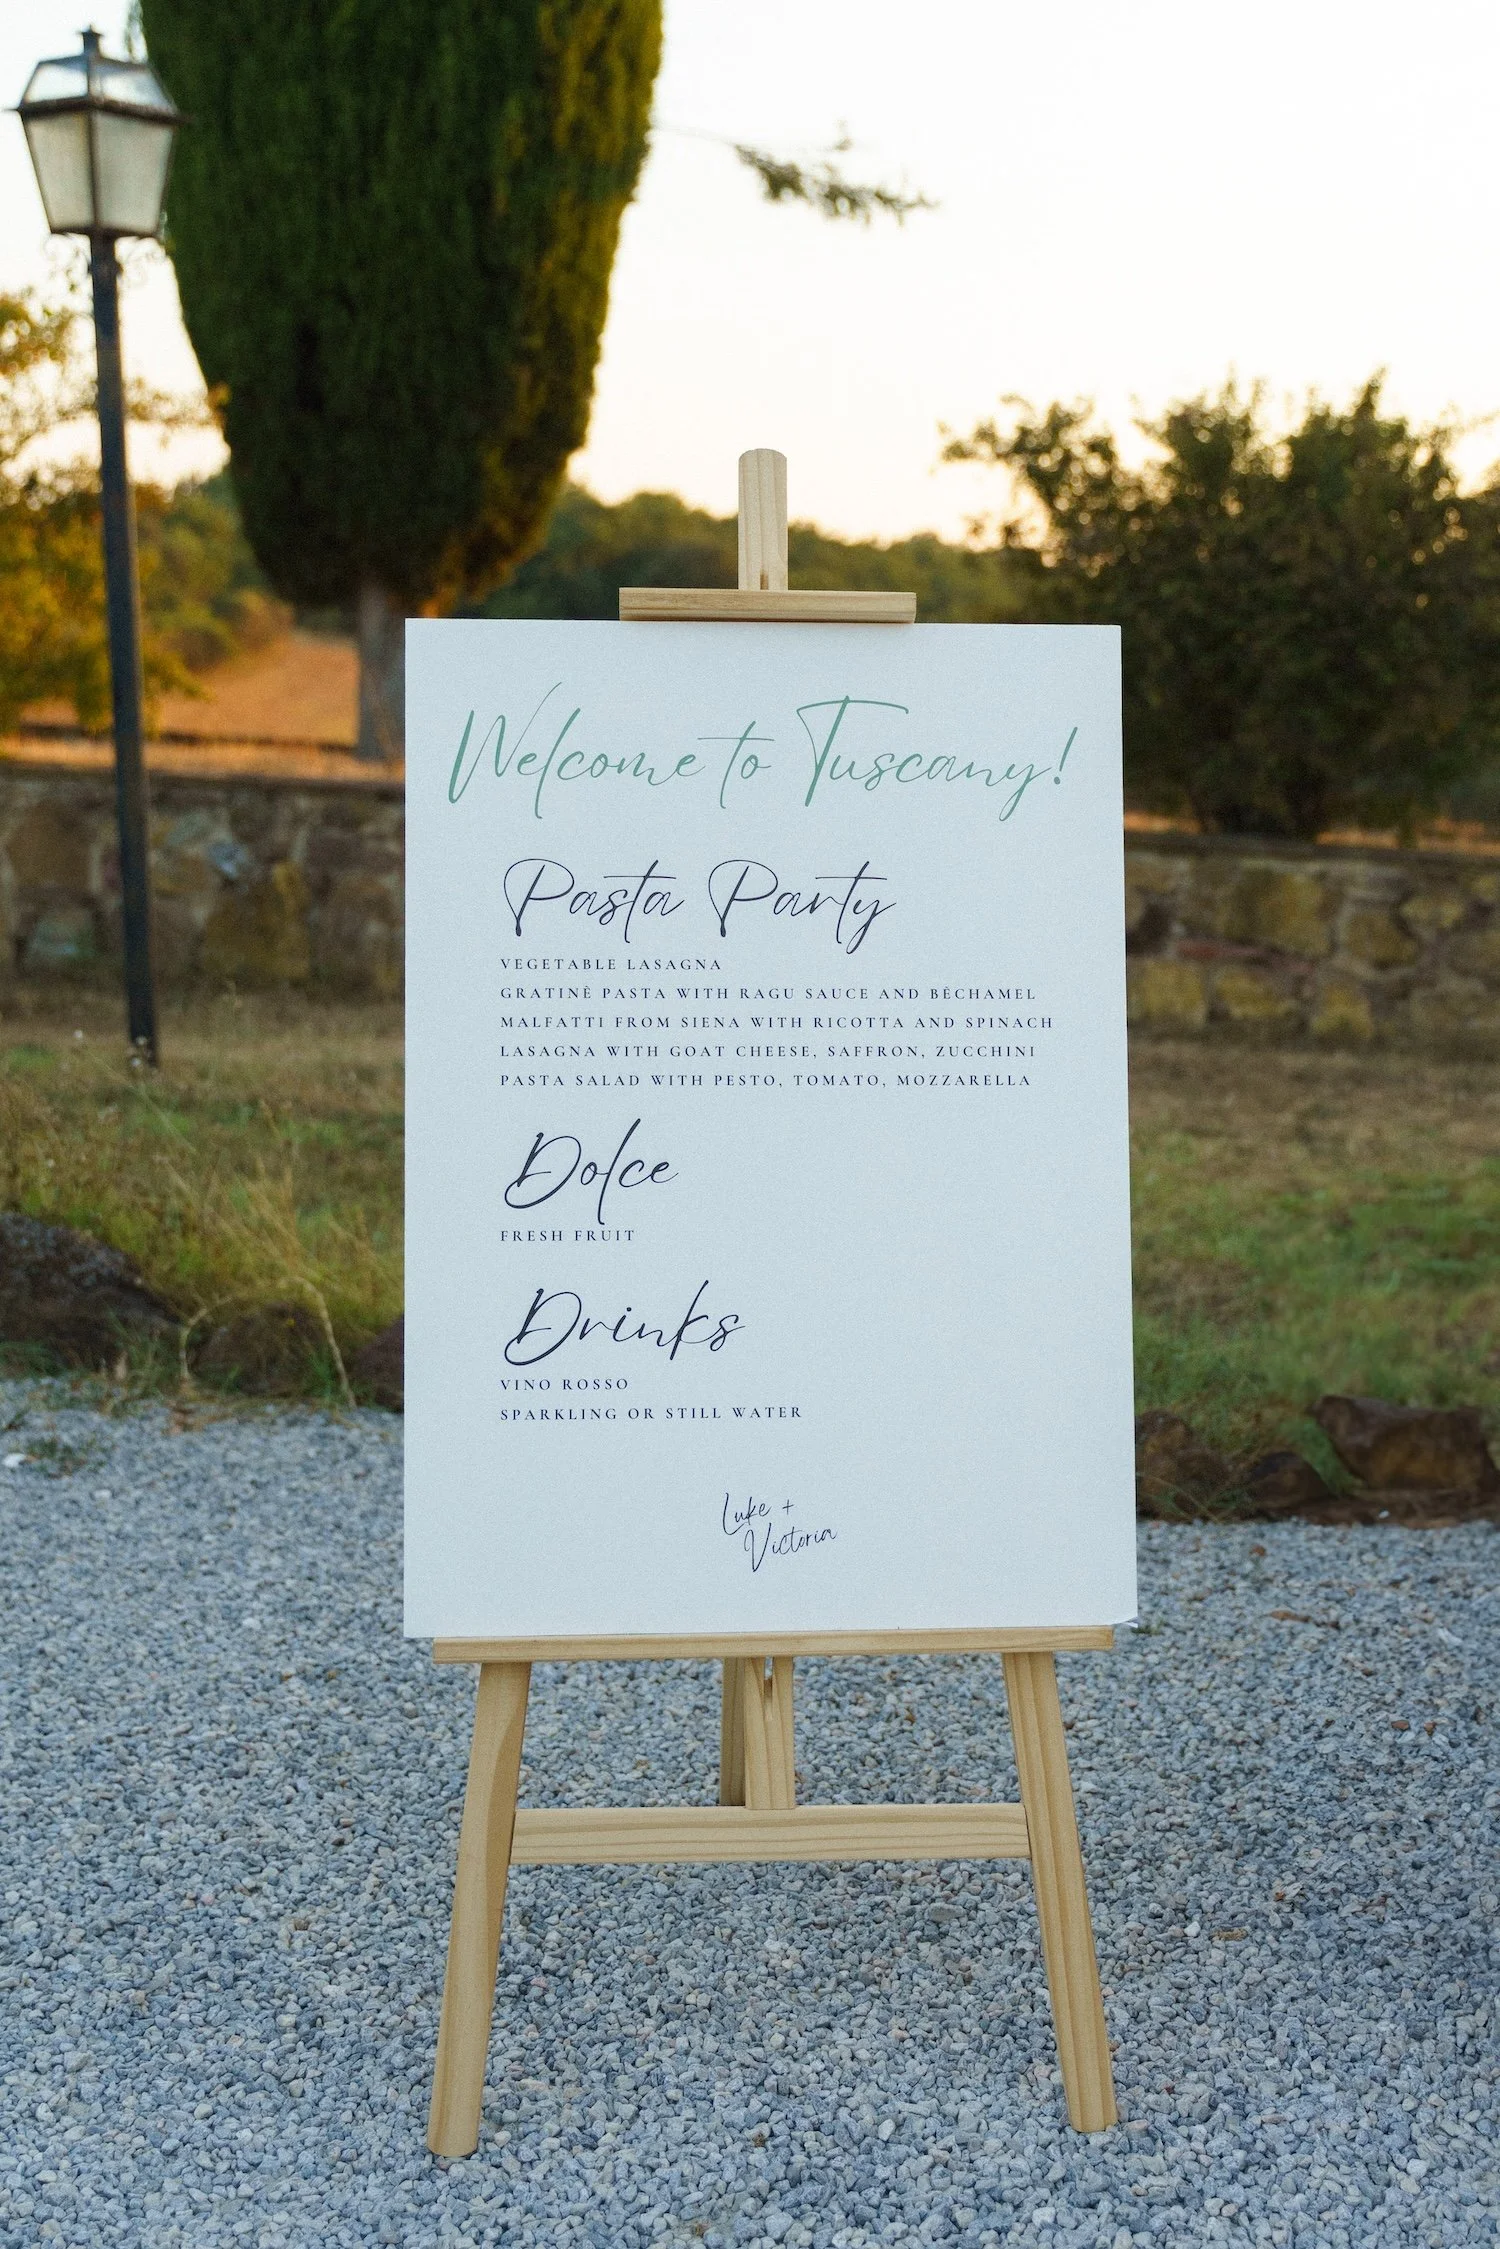 Welcome to Tuscany!
Pasta Party
VEGETABLE LASAGNA
GRATINÊ PASTA WITH RAGU SAUCE AND BÊCHAMEL
MALFATTI FROM SIENA WITH RICOTTA AND SPINACH
LASAGNA WITH GOAT CHEESE, SAFFRON, ZUCCHINI
PASTA SALAD WITH PESTO, TOMATO, MOZZARELLA
Dolce
FRESH FRUIT
Drinks
VINO ROSSO
SPARKLING OR STILL WATER
Luke +
Victoria